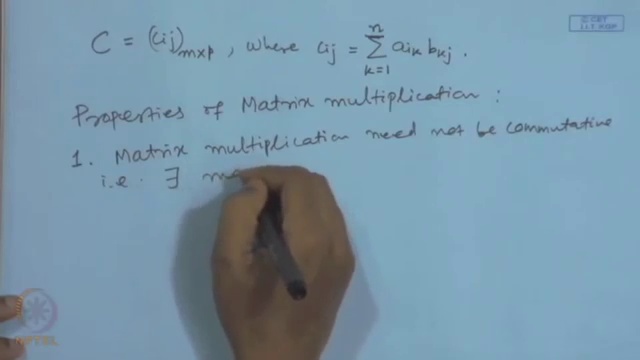 © CET
I.I.T. KGP
C = (cij)m×p, where cij = n∑k=1 aik bkj.
Properties of Matrix multiplication :
1. Matrix multiplication need not be commutative
i.e. ∃
NPTEL